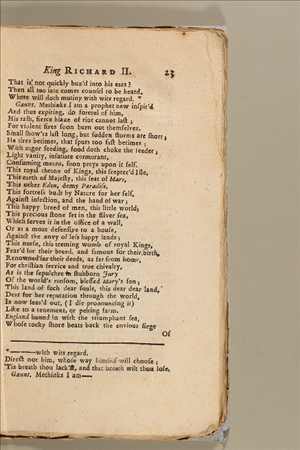 King RICHARD II. 23
That is not quickly buz'd into his ears?
Then all too late comes counsel to be heard,
Where will doth mutiny with wits regard. *
Gaunt. Methinks I am a prophet new inspir'd
And thus expiring, do foretel of him,
His rash, fierce blaze of riot cannot last;
For violent fires soon burn out themselves.
Small show'rs last long, but sudden storms are short;
He tires betimes, that spurs too fast betimes;
With eager feeding, food doth choke the feeder;
Light vanity, insatiate cormorant,
Consuming means, soon preys upon it self.
This royal throne of Kings, this scepter'd Isle,
This earth of Majesty, this seat of Mars,
This other Eden, demy Paradise,
This fortress built by Nature for her self,
Against infection, and the hand of war;
This happy breed of men, this little world;
This precious stone set in the silver sea,
Which serves it in the office of a wall,
Or as a moat defensive to a house,
Against the envy of less happy lands;
This nurse, this teeming womb of royal Kings,
Fear'd for their breed, and famous for their birth,
Renowned for their deeds, as far from home,
For christian service and true chivalry,
As is the sepulchre in stubborn Jury
Of the world's ransom, blessed Mary's son;
This land of such dear souls, this dear dear land,
Dear for her reputation through the world,
Is now leas'd out, (I die pronouncing it)
Like to a tenement, or pelting farm.
England bound in with the triumphant sea,
Whose rocky shore beats back the envious siege
Of
* ——with wits regard.
Direct not him, whose way himself will choose;
'Tis breath thou lack'st, and that breath wilt thou lose.
Gaunt. Methinks I am——